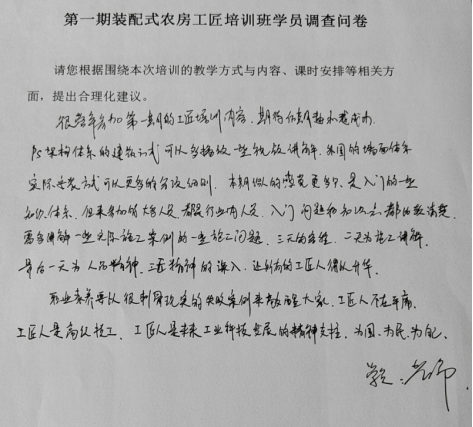 第一期装配式农房工匠培训班学员调查问卷
请您根据围绕本次培训的教学方式与内容、课时安排等相关方
面，提出合理化建议。
很荣幸参加第一期的工匠培训内容，期待
架构体系的建筑方式可以多播放一些视频讲解，的墙面体系
实际安装方式可以更多的 细则。本期 的感觉更多的是入门的一些
知识体系，但来参加的大多人员都是行业内人员，入门问题和知识点都比较清楚
需多讲解一些实际施工案例的一些施工问题，三天的 ，二天为施工讲解，
最后一天为人的精神，工匠精神的深入，让所有的工匠人 升华。
职业素养要以很 现实的失败案例来敲醒大家，工匠人不在平庸，
工匠人是高级技工，工匠人是未来工业科技发展的精神支柱，为国、为民、为自己。